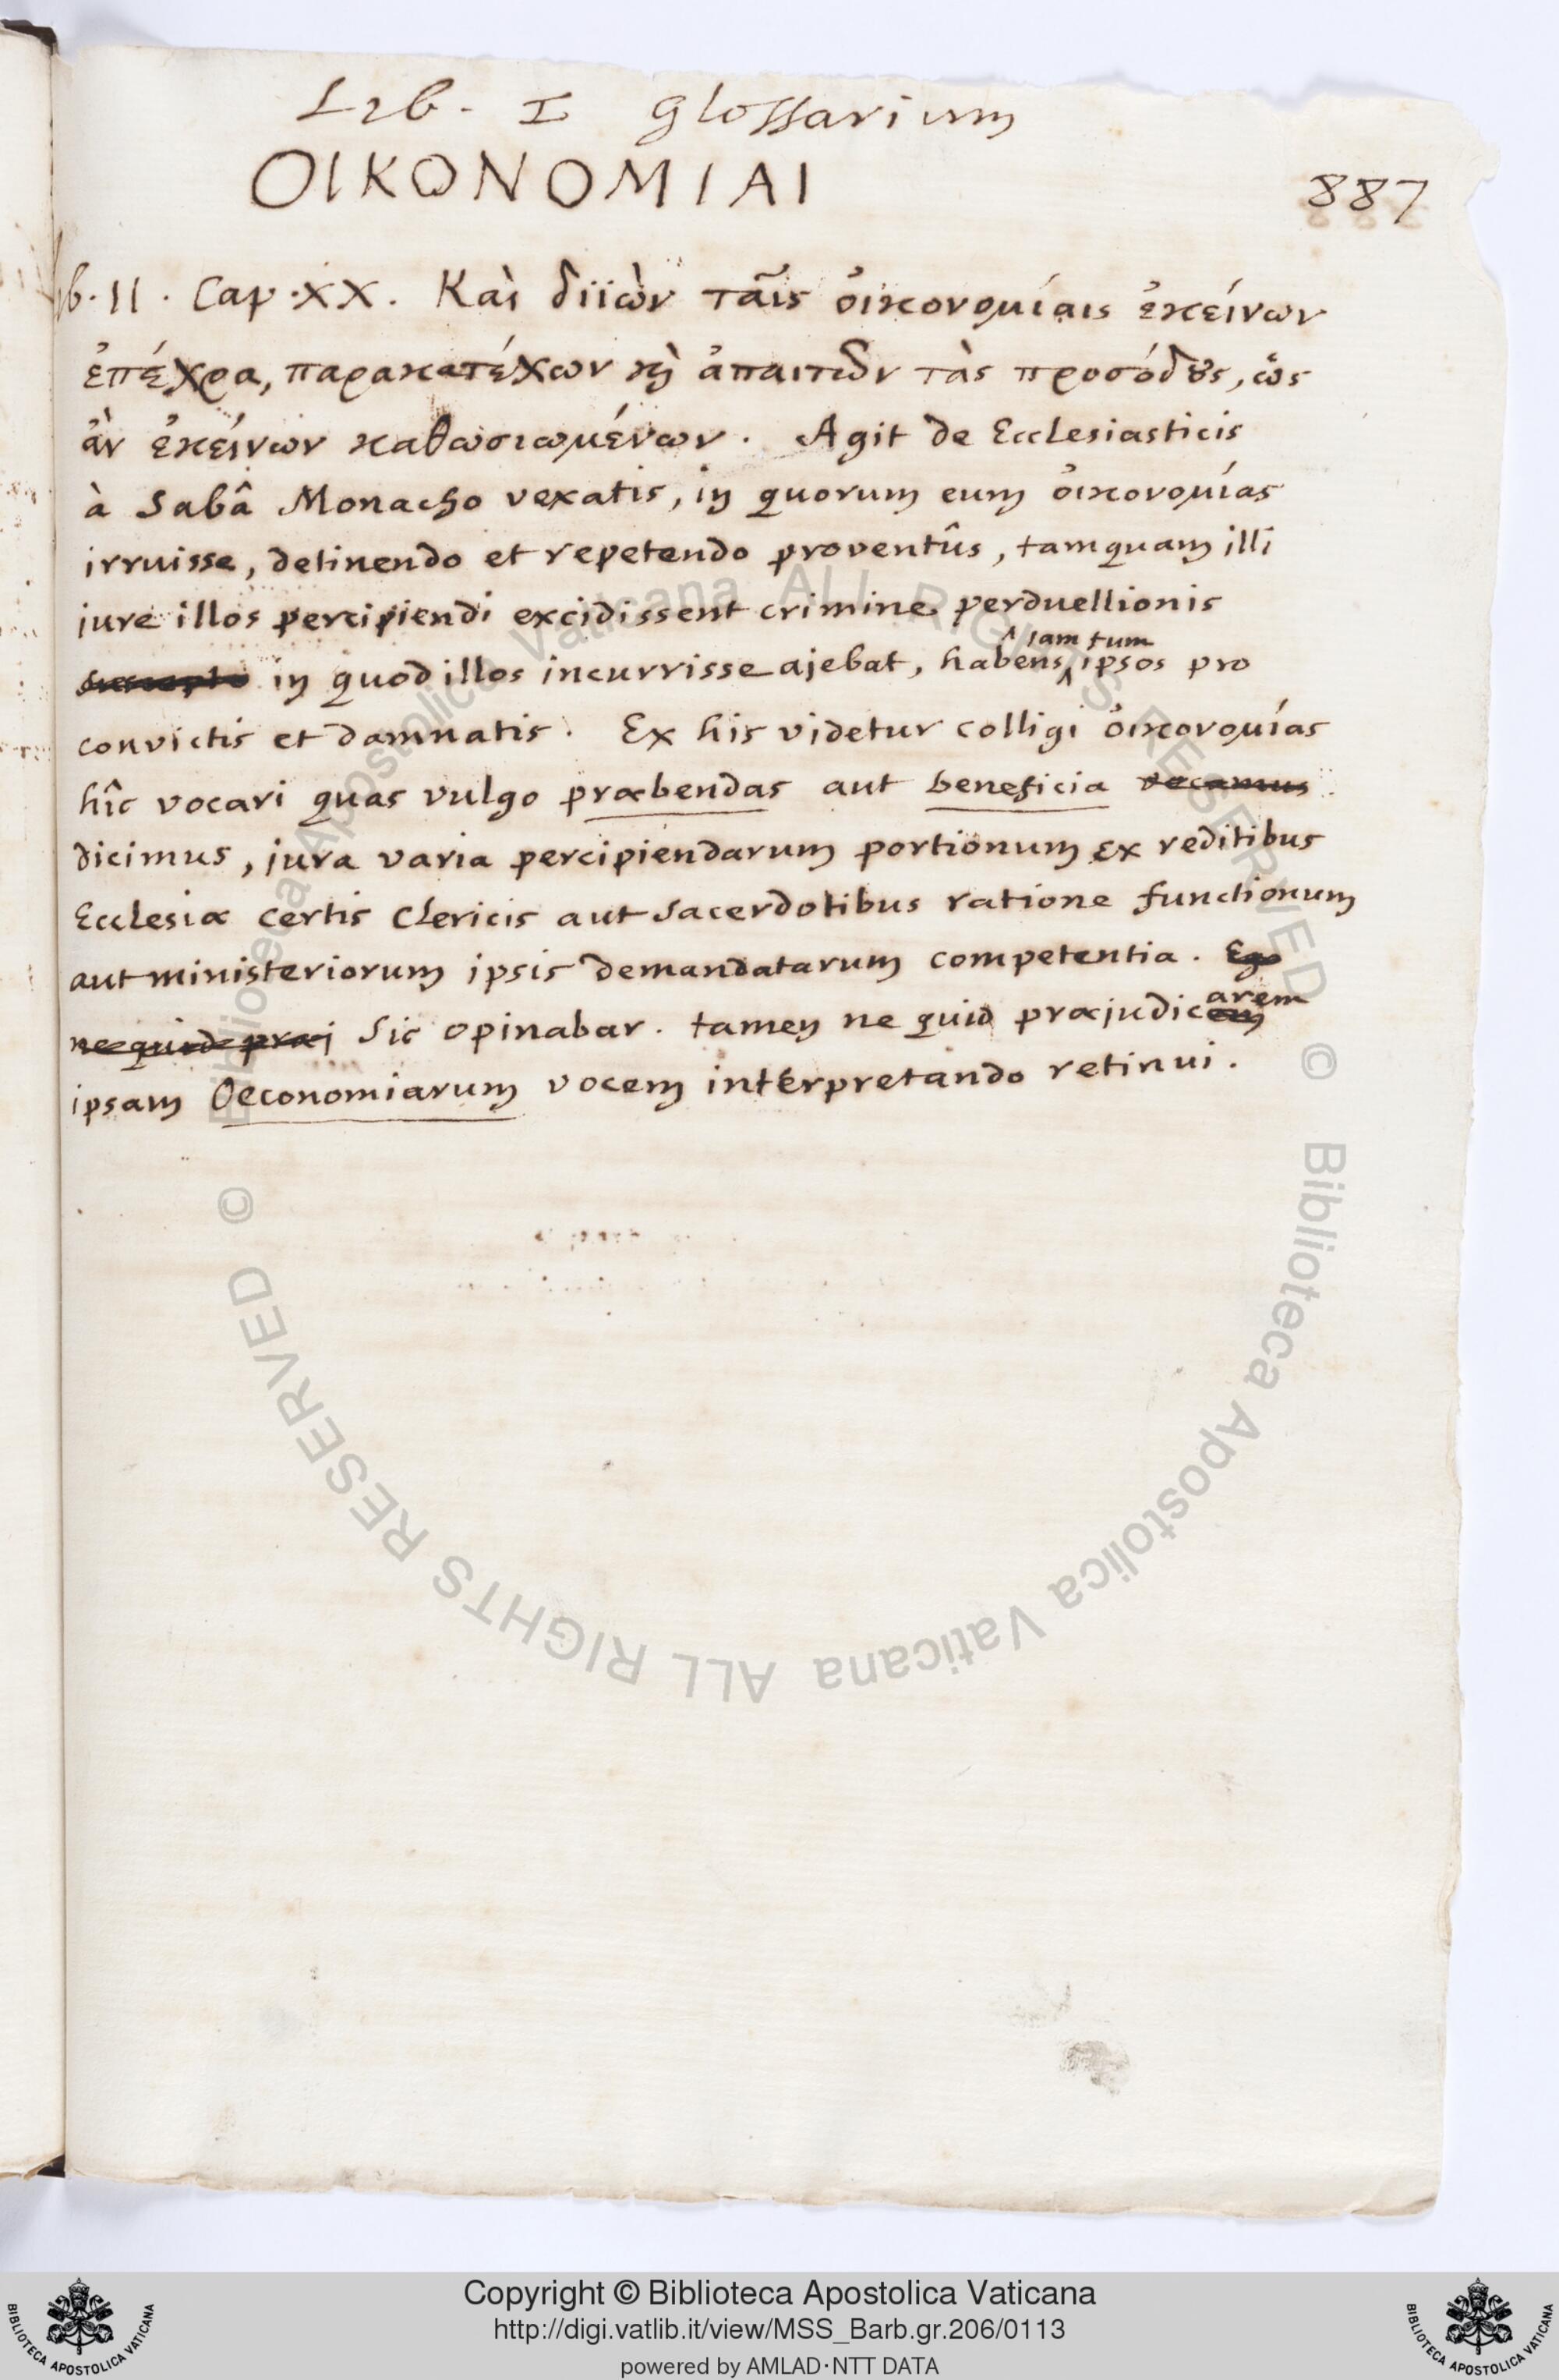 Lib. I glossarium
ΟΙΚΟΝΟΜΙΑΙ
887
b. II. Cap. XX. Καὶ διϊὼν ταῖς οἰκονομίαις ἐκείνων
ἐπέχρα, παρακατέχων καὶ ἀπαιτῶν τὰς προσόδους, ὡς
ἂν ἐκείνων καθωσιωμένων. Agit de Ecclesiasticis
à Sabâ Monacho vexatis, in quorum eum οἰκονομίας
irruisse, detinendo et repetendo proventûs, tamquam illi
jure illos percipiendi excidissent crimine perduellionis
iam tum
in quod illos incurrisse ajebat, habens ipsos pro
convictis et damnatis. Ex his videtur colligi οἰκονομίας
hîc vocari quas vulgo præbendas aut beneficia vocamus
dicimus, jura varia percipiendarum portionum ex reditibus
Ecclesiæ certis Clericis aut sacerdotibus ratione functionum
aut ministeriorum ipsis demandatarum competentia. Ego
arem
ne quid præj sic opinabar. tamen ne quid præjudicem
ipsam Oeconomiarum vocem interpretando retinui.
© Biblioteca Apostolica Vaticana ALL RIGHTS RESERVED © Biblioteca Apostolica Vaticana ALL RIGHTS RESERVED
Copyright © Biblioteca Apostolica Vaticana
http://digi.vatlib.it/view/MSS_Barb.gr.206/0113
powered by AMLAD·NTT DATA
BIBLIOTECA APOSTOLICA VATICANA
BIBLIOTECA APOSTOLICA VATICANA